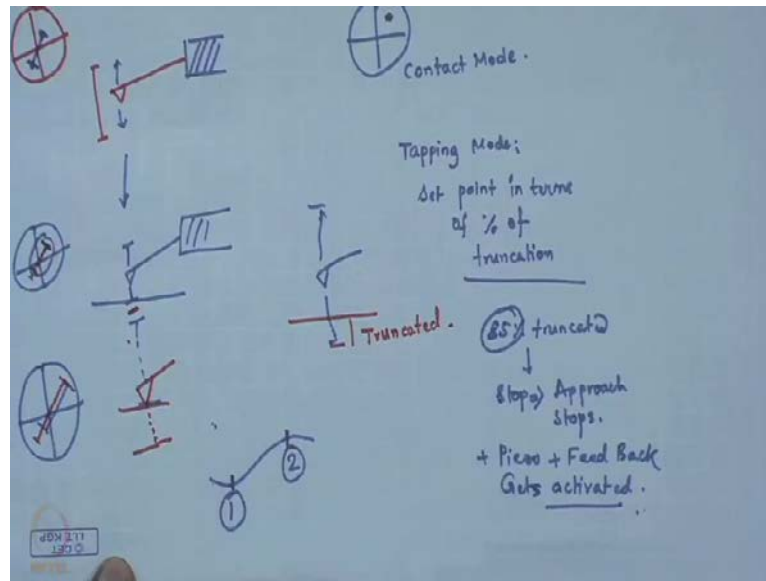 Contact Mode.
Tapping Mode:
Set point in terms
of % of
truncation
Truncated.
85% truncated
Stops) Approach
Stops.
+ Piezo + Feed Back
Gets activated.
1
2
CET
I.I.T. KGP